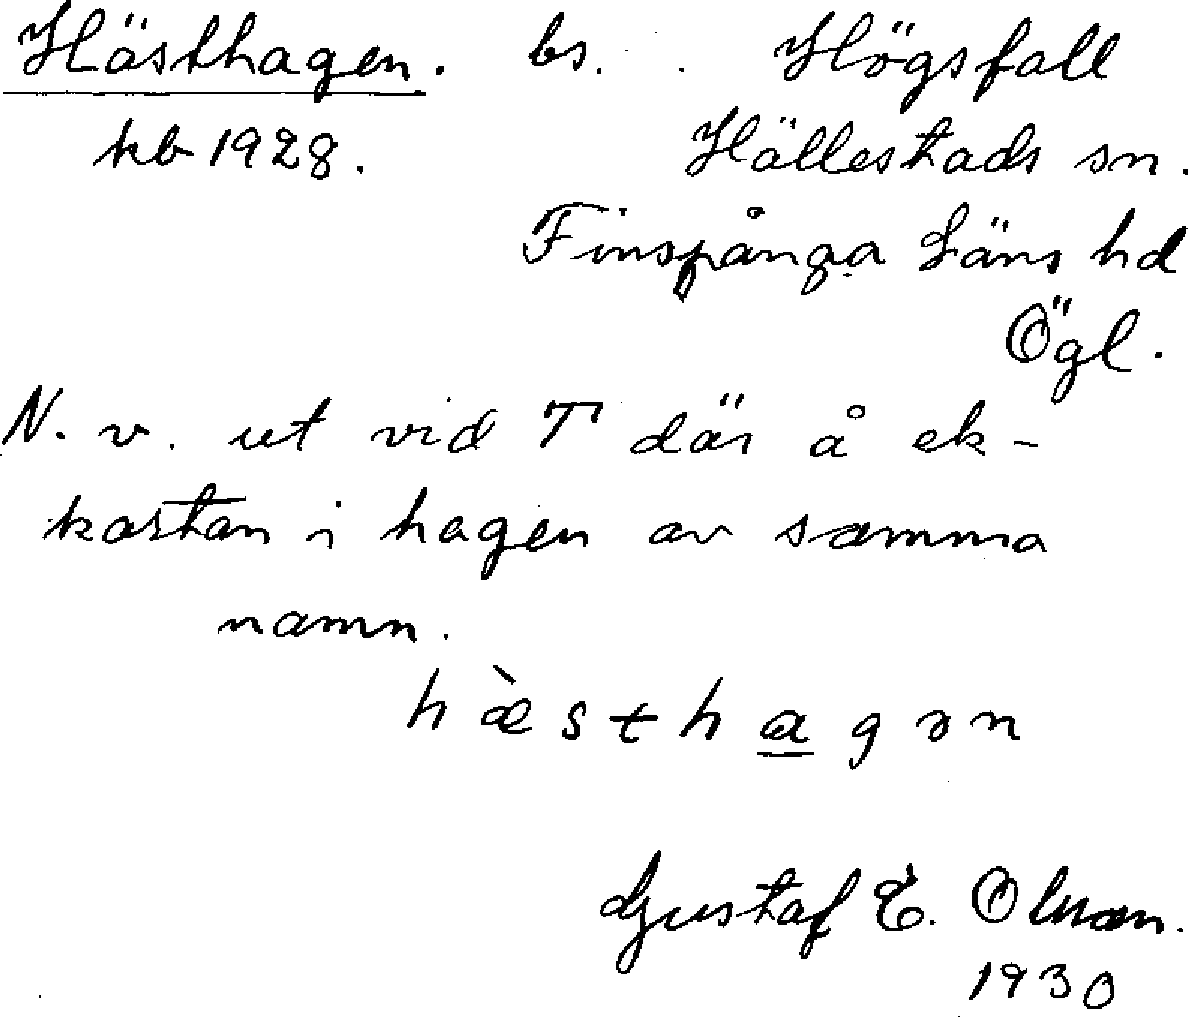 Hästhagen. bs. Högsfall
kb 1928. Hällestads sn.
Finspånga Läns hd
Ögl.
N. v. ut vid T där å ek-
kartan i hagen av samma
namn.
h æ̀ s t h a g ə n
Gustaf E. Olman.
1930